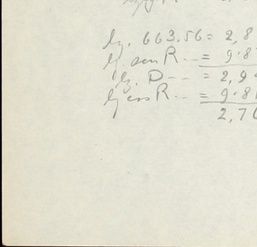 lg. 663.56 = 2,8
lg. sin R -- = 9.8
lg. D -- = 2,9
lg cos R -- = 9.8
2,7